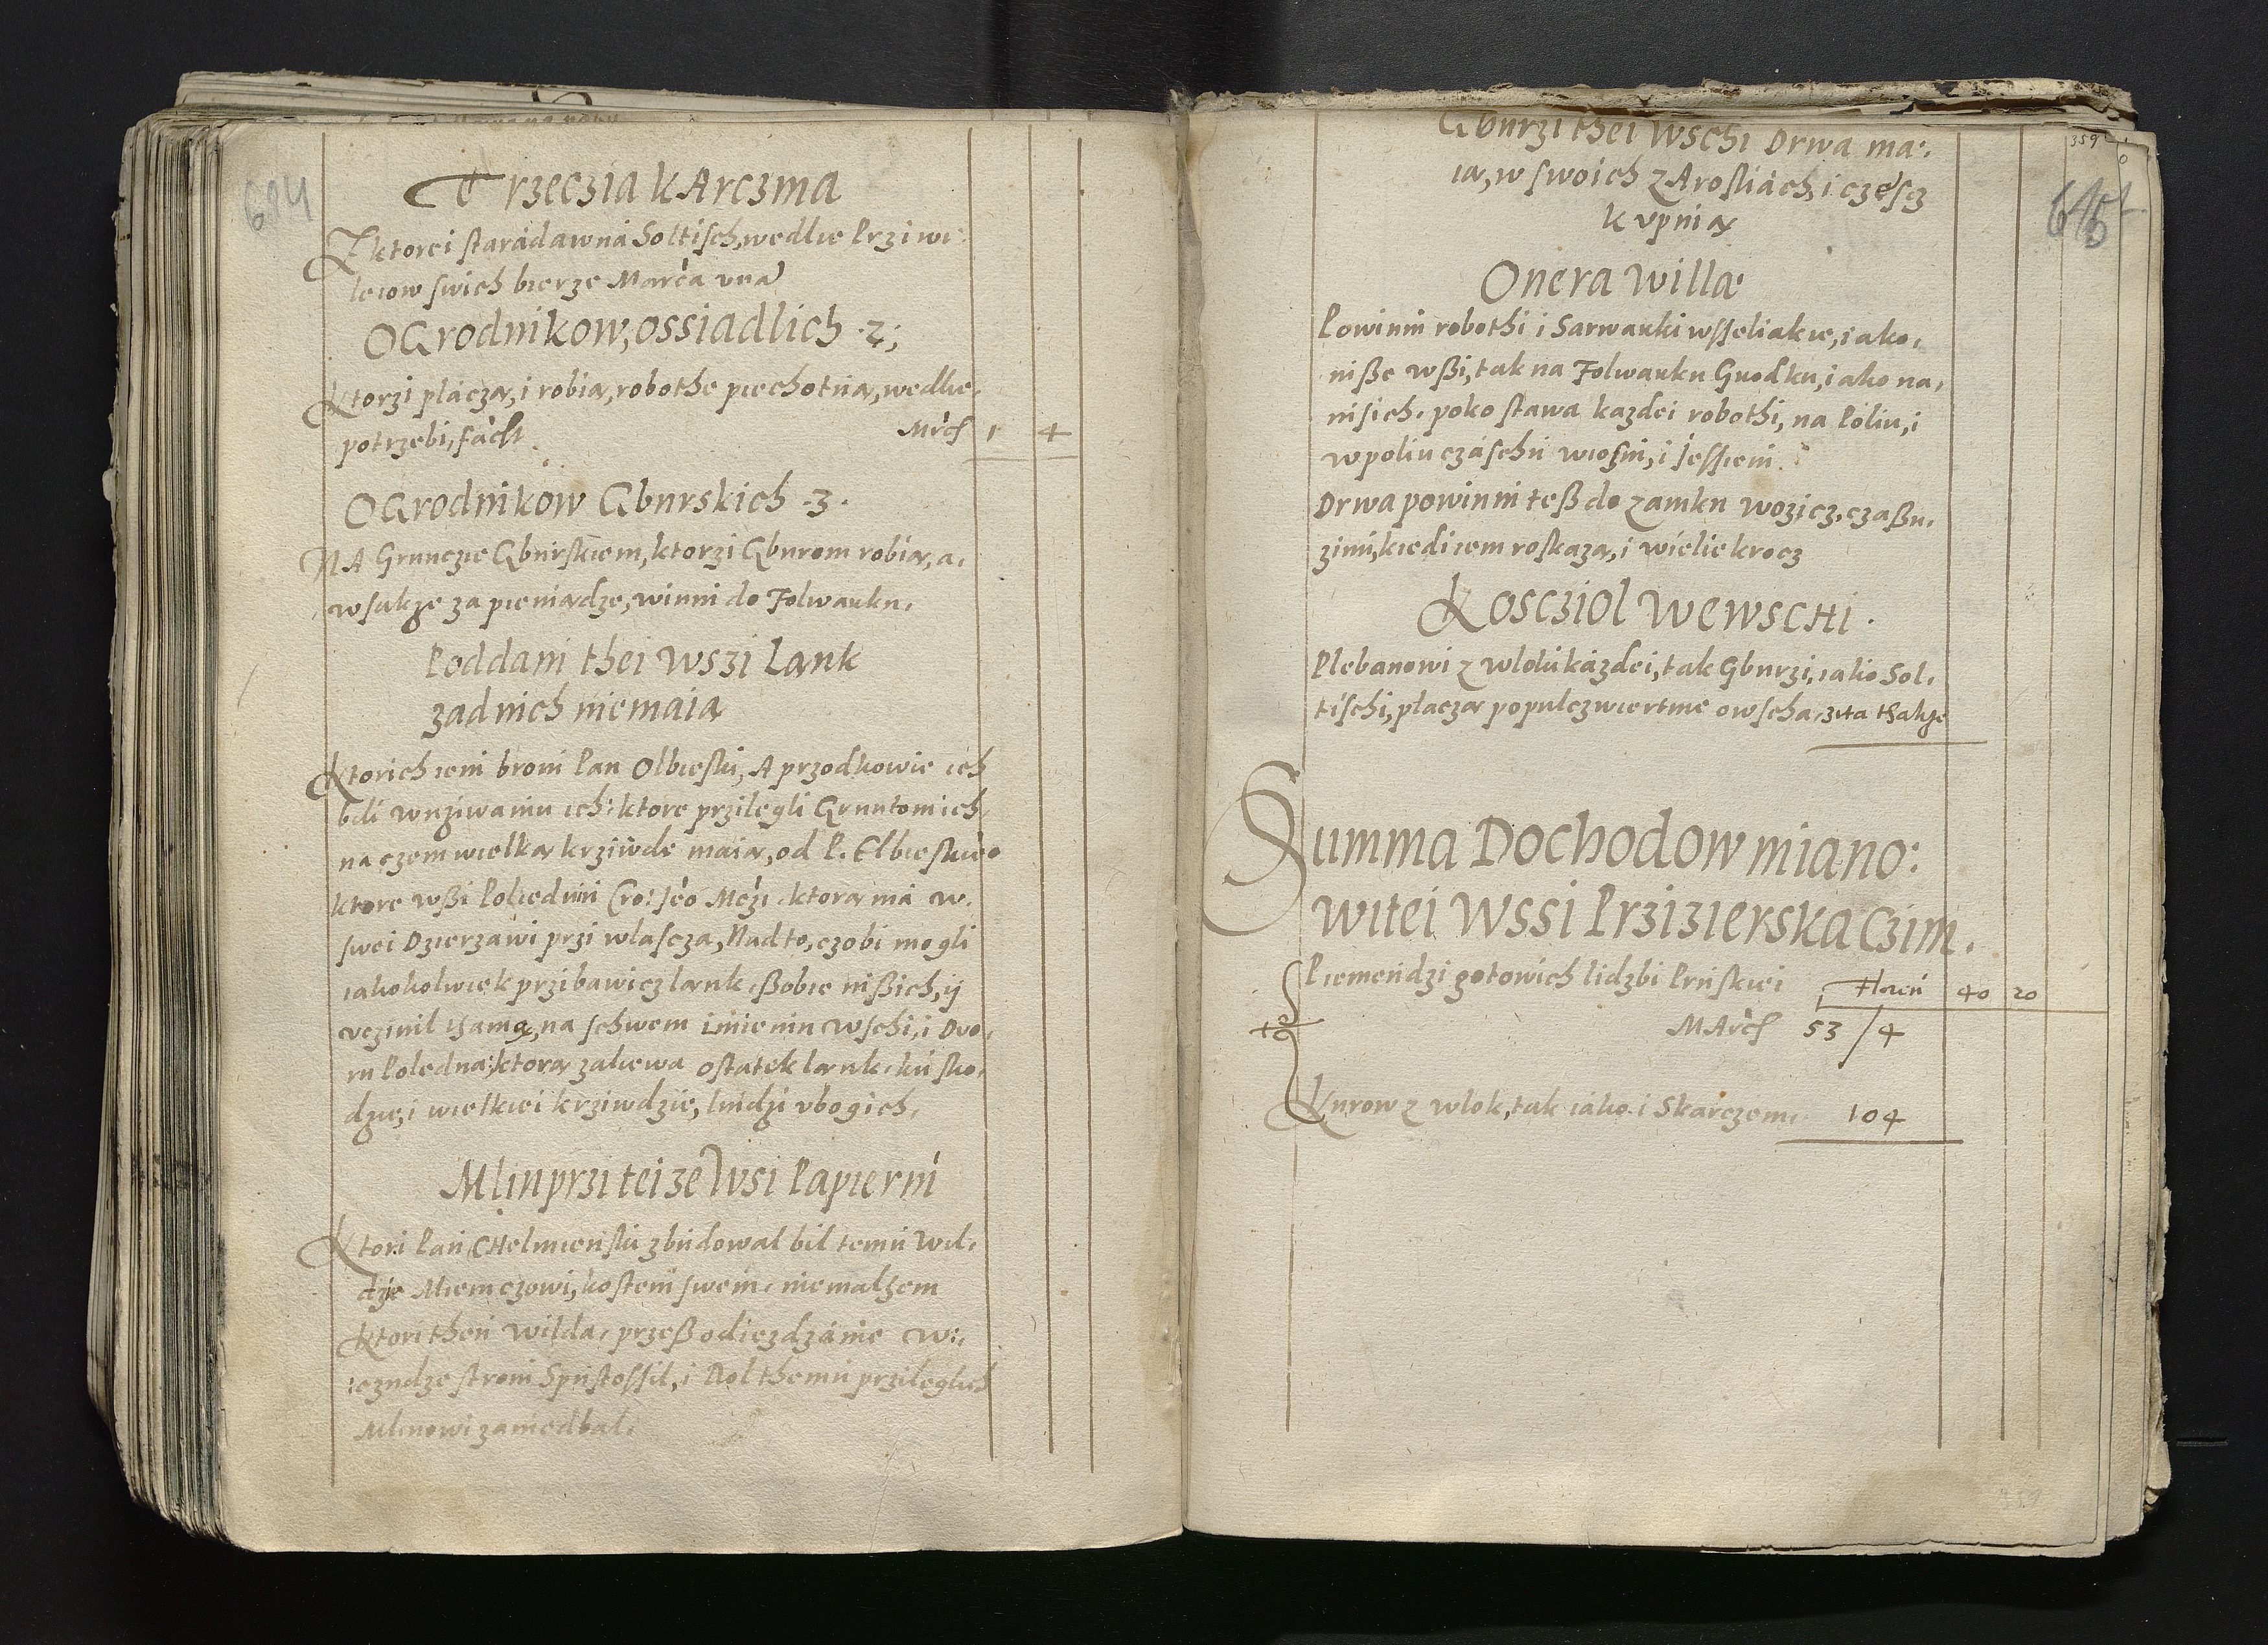 614
Trzeczia kArczma
Z ktorei staradawna Soltisch, wedlie Przi wi:
leiow swich bierze Marca una
OGrodnikow, ossiadlich .2;
Ktorzi placzą, i robią, robothe piechotną, wedlie,
potrzebi, facit. Mrcſ 1 4
OGrodnikow Gburskich .3.
NA Grunczie Gburskiem, ktorzi Gburom robią, a,
wsakze za pieniądze, winni do Folwarku,
Poddani thei wszi Lank
zadnich niemaią
Ktorich iem broni Pan Olbieski, A przodkowie ich
bili wuziwaniu ich: ktore przilegli Gruntom ich,
na czem wielką krziwde maią, od P. Elbieskieo
ktore wßi Poliednni Cro: Jeo Mczi ktorą ma w.
swei Dzierzawi przi wlascza, Nad to, czobi mogli
iakokolwiek przibawicz lank, ßobie nißich, ij
uczinil tamą, na schwem imieniu wschi, i Dvo,
ru Poledną: ktorą zaliewa ostatek lank, ku sko,
dzie, i wielkiei krziwdzie, liudzi ubogich,
Mlin przi teize Wsi Papierni
Ktori Pan CHelmienski zbudowal bil temu Wil,
dzie Niemczowi, kostem swem, niemalzem
ktori then Wilda, przeß odiezdzanie w:,
:czudze stroni Spustossil, i Rol themu przileglich
Mlinowi zaniedbal,
359
615
Gburzi thei Wschi Drwa ma:,
ią, w swoich zArosliach, i czescz
kupnią
Onera Willæ
Powinni robothi i Sarwarki wsseliakie, iako,
niße wßi, tak na Folwarku Grodku, i ako na,
nisich, poko stawa kazdei robothi, na Poliu, i
w poliu czaschu wiosni, i Jessieni.
Drwa powinni teß do zamku wozicz, czaßu,
zimi, kiedi iem roskazą, i wielie krocz
Kosczioł WewscHi.
Plebanowi z wloki kazdei, tak Gburzi, iako Sol,
tischi, placzą po pulczwiertnie owscha, zita thakze
Summa Dochodow miano:
witei Wssi Przizierska Czim.
Pieniendzi gotowich lidzbi Pruskiei Floren 40 20
MArcſ 53/4
Kurow z wlok, tak iako i Skarczem, 104